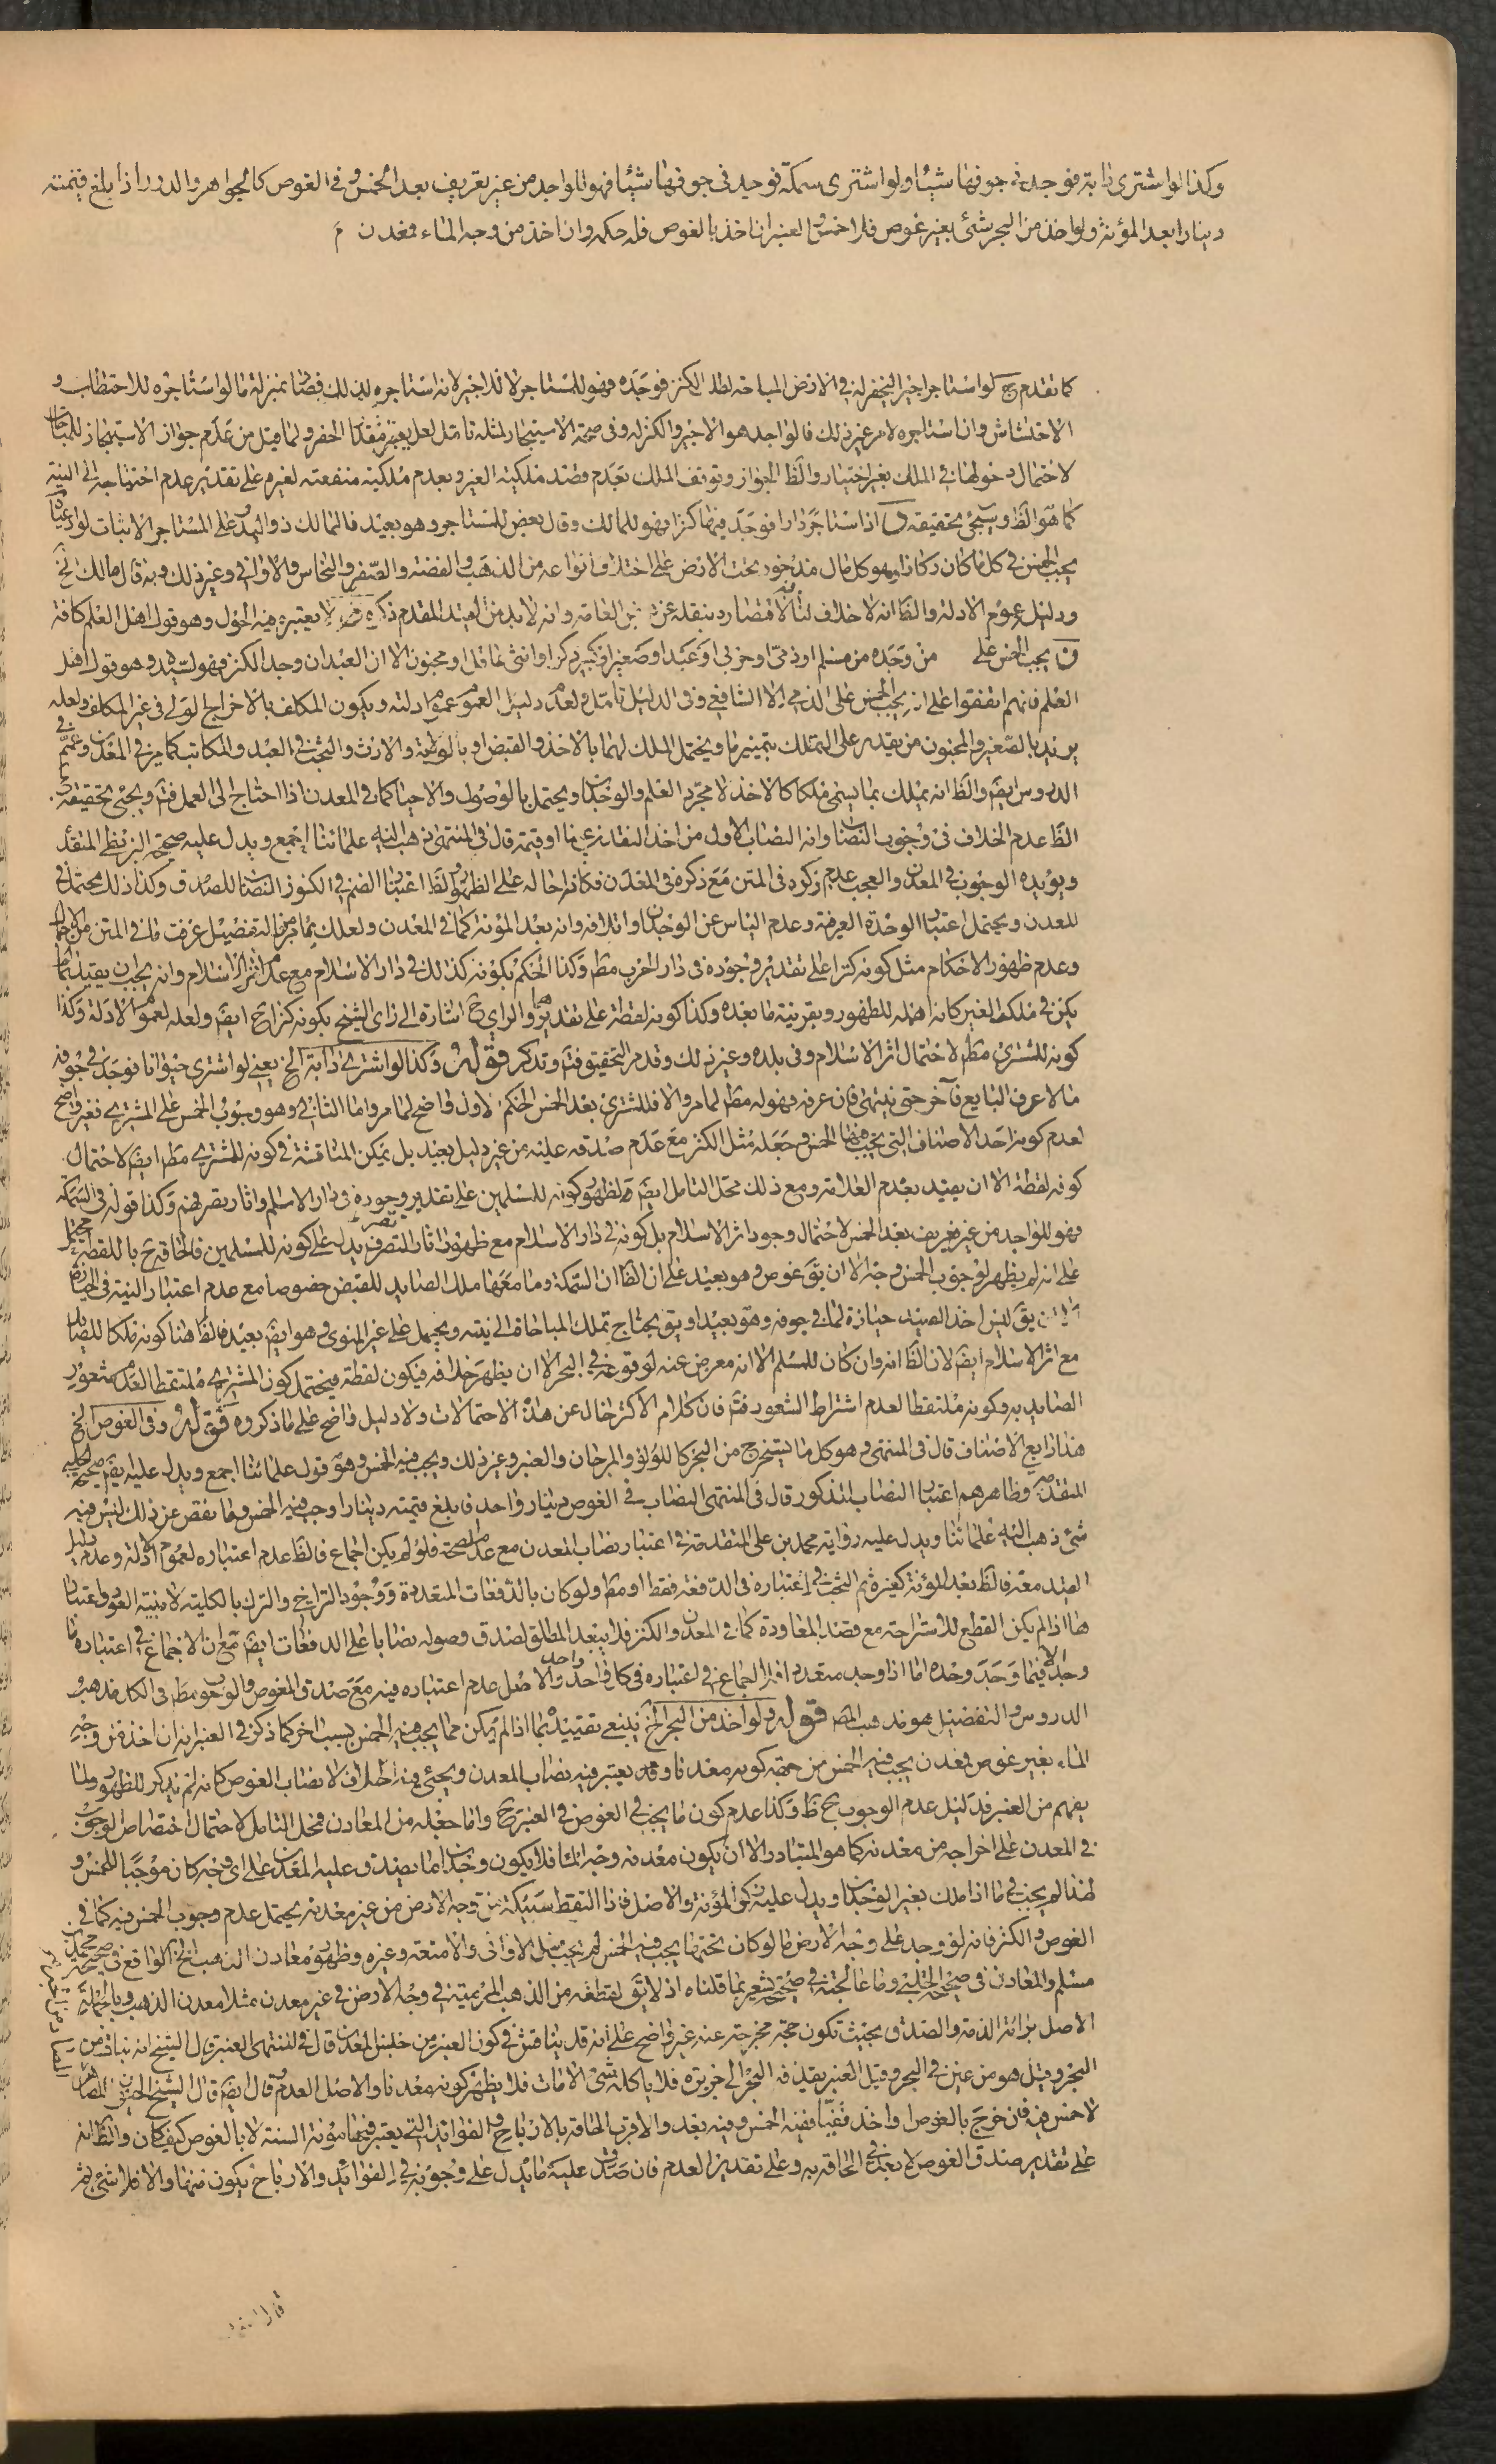 وكذا لو اشترى دابة فوجد في جوفها شيئا ولو اشترى سمكة فوجد في جوفها شيئا فهو للواجد من غير تعريف بعد الخمس و في الغوص كالجواهر والدرر اذا بلغ قيمته
دينارا بعد المؤنة ولو اخذ من البحر شئ بغير غوص فلا خمس والعنبر ان اخذ بالغوص فله حكمه وان اخذ من وجه الماء فمعدن م
كما تقدم ج لو استاجر اجيرا ليحفر له في الارض المباحة لطلب الكنز فوجده فهو للمستاجر لا للاجير لانه استاجره لذلك فصار بمنزلة ما لو استاجره للاحتطاب و
الاحتشاش وان استاجره لامر غير ذلك فالواجد هو الاجير والكنز له وفي صحة الاستيجار لمثله تامل لعل يعتبر مقدار الحفر ولما قيل من عدم جواز الاستيجار للمباحات
لاحتمال دخولها في الملك بغير اختيار والظ الجواز وتوقف الملك بعدم قصد ملكية الغير وبعدم ملكية منفعته لغيره على تقدير عدم احتياجه الى النية
كما هو الظ وسيجئ تحقيقه اذا استاجر دارا فوجد فيها كنزا فهو للمالك وقال بعض للمستاجر وهو بعيد فالمالك ذو اليد وعلى المستاجر الاثبات لو ادعاه
يجب الخمس في كل ما كان ركازا وهو كل مال مذخور تحت الارض على اختلاف انواعه من الذهب والفضة والصفر والنحاس والاواني وغير ذلك وبه قال مالك الخ
ودليله عموم الادلة والظ انه لا خلاف لنا بنقله عن العامة وانه لا بد من القيد المقدم ذكره لا يعتبر فيه الحول وهو قول اهل العلم كافة
ق يجب الخمس على من وجده من مسلم او ذمي او حربي او عبد او صغير او كبير ذكرا او انثى عاقل او مجنون الا ان العبد ان وجد الكنز فهو لسيده وهو قول اهل
العلم فانهم اتفقوا على انه يجب الخمس على الذمي الا الشافعي وفي الدليل تامل ولعله دليل العموم عموم ادلته ويكون المكلف بالاخراج الولي في غير المكلف ولعله
يريد بالصغير والمجنون من يقدر على التملك بتمييز ما ويحتمل الملك لهما بالاخذ والقبض او بالولاية والارث والبحث في العبد والمكاتب كما مر في المعدن وعمم في
الدروس ايضا والظ انه يملك بما يسمى ملكا كالاخذ لا مجرد العلم والوجدان ويحتمل بالوصول والاحياء كما في المعدن اذا احتاج الى العمل فتم ويجئ تحقيقه
الظ عدم الخلاف في وجوب النصاب وانه النصاب الاول من احد النقدين عينا او قيمة قال في المنتهى ذهب اليه علمائنا اجمع ويدل عليه صحيحة البزنطي المتقدمة
ويؤيده الوجوب في المعدن والعجب عدم ذكره في المتن مع ذكره في المعدن فكانه احاله على الظهور والظ اعتبار الضم في الكنوز النصاب للصدق وكذا ذلك محتمل في
المعدن ويحتمل اعتبار الوحدة العرفية وعدم الياس عن الوجدان واتلافه وانه بعد المؤنة كما في المعدن ولعلك بما مر من التفصيل عرفت ما في المتن من الاجمال
وعدم ظهور الاحكام مثل كونه كنزا على تقدير وجوده في دار الحرب مط وكذا الحكم بكونه كذلك في دار الاسلام مع عدم اثر الاسلام وانه يجب ان يقيد بما لم
يكن في ملك الغير كانه اهمله للظهور وبقرينة ما بعده وكذا كونه لقطة على تقديرهما والراي ح اشارة الى راي الشيخ بكونه كنزا ح ايضا ولعله لعموم الادلة وكذا
كونه للمشتري مط لاحتمال اثر الاسلام وفي بلده وغير ذلك وقد مر التحقيق فتم وتذكر قوله وكذا لو اشترى دابة الخ يعني لو اشترى حيوانا فوجد في جوفه
مالا عرف البايع فآخر حتى ينتهي فان عرفه فهو له مط لما مر والا فللمشتري بعد الخمس الحكم الاول واضح لما مر واما الثاني وهو وجوب الخمس على المشتري فغير واضح
لعدم كونه احد الاصناف التي يجب فيها الخمس وجعله مثل الكنز مع عدم صدقه عليه من غير دليل بعيد بل يمكن المناقشة في كونه للمشتري مط ايضا لاحتمال
كونه لقطة الا ان يقيد بعدم العلامة ومع ذلك محل التامل ايضا لظهور كونه للمسلمين على تقدير وجوده في دار الاسلام واثار تصرفهم وكذا قوله في السمكة
فهو للواجد من غير تعريف بعد الخمس لاحتمال وجود اثر الاسلام بل كونه في دار الاسلام مع ظهور اثار التصرف يدل على كونه للمسلمين فالحاقه ح باللقطة محتمل
على انه لم يظهر لوجوب الخمس وجه الا ان يق غوص وهو بعيد على ان الظ ان السمكة وما معها ملك الصايد للقبض خصوصا مع عدم اعتبار النية في الحيازة
يق ليس اخذ الصيد حيازة لما في جوفه وهو بعيد او يق يحتاج تملك المباحات الى نية ويحمل على غير المنوي وهو ايضا بعيد فالظ هنا كونه ملكا للصايد
مع اثر الاسلام ايضا لان الظ انه وان كان للمسلم الا انه معرض عنه لوقوعه في البحر الا ان يظهر خلافه فيكون لقطة فيحتمل كون المشتري ملتقطا لعدم شعور
الصايد به وكونه ملتقطا لعدم اشتراط الشعور فتم فان كلام الاكثر خال عن هذه الاحتمالات ولا دليل واضح على ما ذكروه قوله وفي الغوص الخ
هذا رابع الاصناف قال في المنتهى وهو كل ما يستخرج من البحر كاللؤلؤ والمرجان والعنبر وغير ذلك ويجب فيه الخمس وهو قول علمائنا اجمع ويدل عليه ايضا صحيحة الحلبي
المتقدمة وظاهرهم اعتبار النصاب المذكور قال في المنتهى النصاب في الغوص دينار واحد فما بلغ قيمته دينارا وجب فيه الخمس وما نقص عن ذلك ليس فيه
شئ ذهب اليه علمائنا ويدل عليه رواية محمد بن علي المتقدمة في اعتبار نصاب المعدن مع عدم الصحة فلو لم يكن اجماع فالظ عدم اعتباره لعموم الادلة وعدم دليل
القيد معه فالظ بعد المؤنة كغيره ثم البحث في اعتباره في الدفعة فقط او مط ولو كان بالدفعات المتعددة ووجود التراخي والترك بالكلية لا بنية العود واعتبار
هذا اذا لم يكن القطع للاستراحة مع قصد المعاودة كما في المعدن والكنز فلا يبعد المطلق لصدق وصوله نصابا على الدفعات ايضا مع ان الاجماع في اعتباره
وجد فيما وجد وحده اما اذا وجد متعدد افلا اجماع في اعتباره في كل واحد واحد والاصل عدم اعتباره فيه مع صدق الغوص والوجوب مط في الكل مذهب
الدروس والتفصيل هو مذهب المص قوله ولو اخذ من البحر الخ ينبغي تقييده بما اذا لم يكن مما يجب فيه الخمس بسبب اخر كما ذكر في العنبر انه ان اخذ من وجه
الماء بغير غوص فمعدن يجب فيه الخمس من جهة كونه معدنا وقد يعتبر فيه نصاب المعدن ويجئ فيه الخلاف لا نصاب الغوص كانه لم يذكر للظهور ولما
يفهم من العنبر فدليل عدم الوجوب ح ظ وكذا عدم كون ما يجب في الغوص في العنبر ح واما جعله من المعادن فمحل التامل لاحتمال اختصاص الوجوب
في المعدن على اخراجه من معدنه كما هو المتبادر الا ان يكون معدنه وجه الماء فلا يكون وجدان ما يصدق عليه المعدن على اي وجه كان موجبا للخمس و
لهذا لم يجب في ما اذا ملك بغير الوجدان ويدل عليه ذكر المؤنة والاصل فاذا التقط سبيكة من وجه الارض من غير معدنه يحتمل عدم وجوب الخمس فيه كما في
الغوص والكنز فانه لو وجد على وجه الارض ما لو كان تحتها يجب فيه الخمس لم يجب مثل الاواني والامتعة وغيره وظهور معادن الذهب الخ الواقع في صحيحة محمد بن
مسلم والمعادن في صحيحة الحلبي وما عالجته في صحيحة مشعر بما قلناه اذ لا يق لقطعة من الذهب المرمية في وجه الارض في غير معدن مثلا معدن الذهب وبالجملة
الاصل براءة الذمة والصدق بحيث تكون حجة مخرجة عنه غير واضح على انه قد يناقش في كون العنبر من جنس المعدن قال في المنتهى العنبر قال الشيخ انه نبات من
البحر وقيل هو من عين في البحر وقيل العنبر يقذفه البحر الى جزيرة فلا ياكله شئ الا مات فلا يظهر كونه معدنا والاصل العدم وقال ايضا قال الشيخ
لا خمس فيه فان خرج بالغوص او اخذ قفيا ففيه الخمس وفيه بعد والاقرب الحاقه بالارباح والفوائد التي يعتبر فيها مؤنة السنة لا بالغوص كيف كان والظ انه
على تقدير صدق الغوص لا بعد في الحاقه به وعلى تقدير العدم فان صدق عليه ما يدل على وجوبه في الفوائد والارباح يكون منها والا فلا شئ ثم